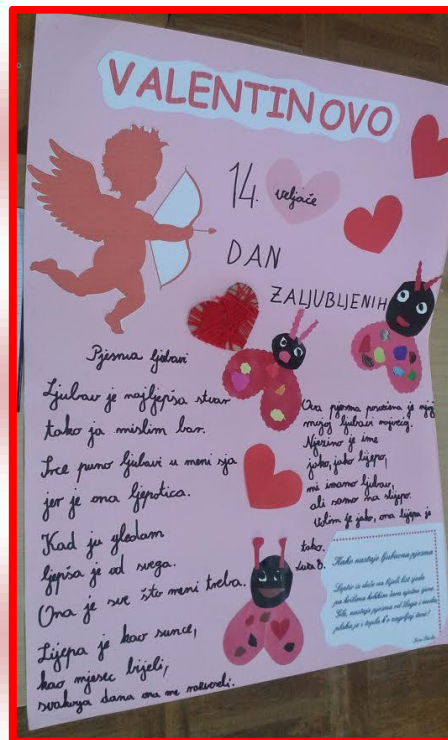 VALENTINOVO
14. veljače
DAN
ZALJUBLJENIH
Pjesma ljubavi
Ljubav je najljepša stvar
tako ja mislim bar.
Srce puno ljubavi u meni sja
jer je ona ljepotica.
Kad ju gledam
ljepša je od svega.
Ona je sve što meni treba.
Lijepa je kao sunce,
kao mjesec bijeli,
svakoga dana ona me razveseli.
Ova pjesma posvećena je njoj
mojoj ljubavi najvećoj.
Njezino je ime
jako, jako lijepo,
mi imamo ljubav,
ali samo na slijepo.
Volim je jako, ona lijepa je
tako.
Luka B.
Kako nastaje ljubavna pjesma